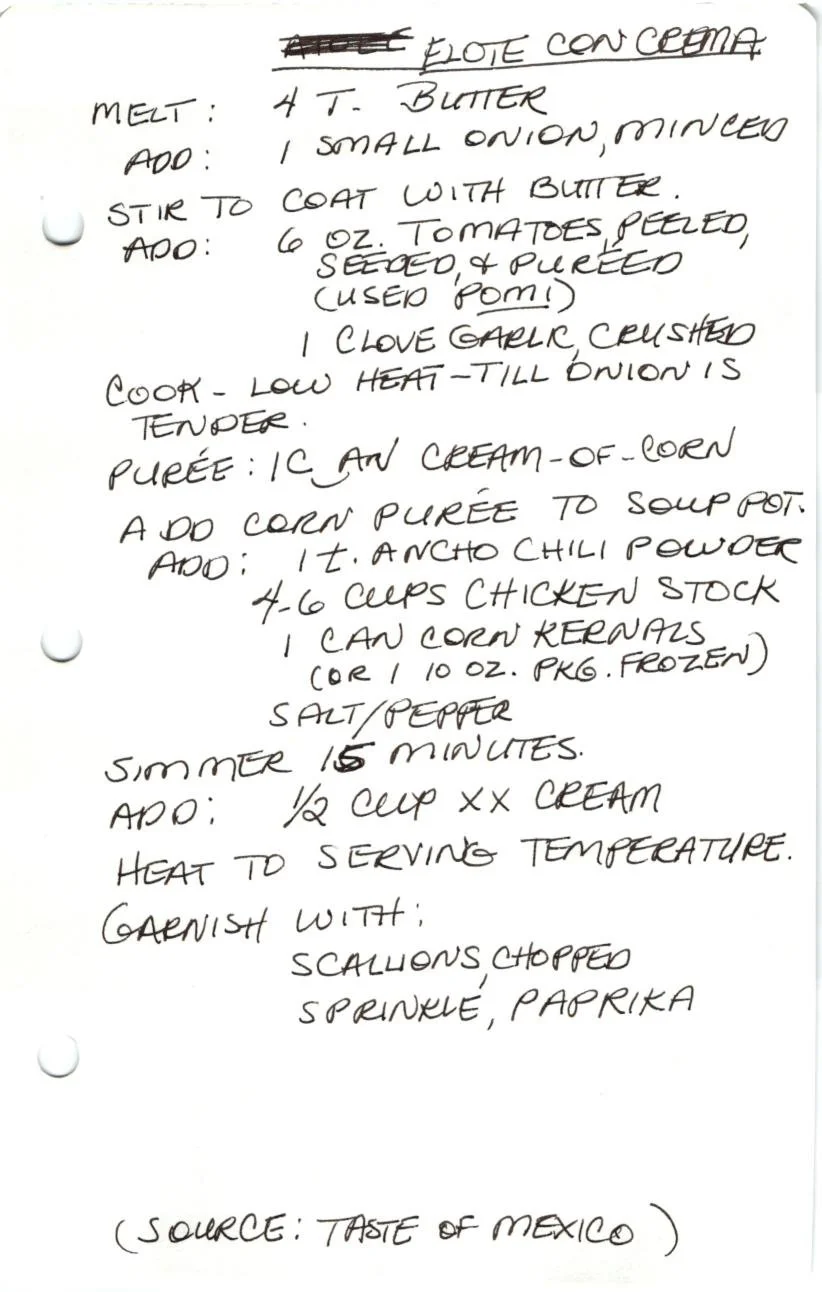 ELOTE CON CREMA
MELT: 4 T. BUTTER
ADD: 1 SMALL ONION, MINCED
STIR TO COAT WITH BUTTER.
ADD: 6 OZ. TOMATOES, PEELED,
SEEDED, & PURÉED
(USED POMI)
1 CLOVE GARLIC, CRUSHED
COOK - LOW HEAT - TILL ONION IS
TENDER.
PURÉE: 1 CAN CREAM-OF-CORN
ADD CORN PURÉE TO SOUP POT.
ADD: 1 t. ANCHO CHILI POWDER
4-6 CUPS CHICKEN STOCK
1 CAN CORN KERNALS
(OR 1 10 OZ. PKG. FROZEN)
SALT/PEPPER
SIMMER 15 MINUTES.
ADD: 1/2 CUP XX CREAM
HEAT TO SERVING TEMPERATURE.
GARNISH WITH:
SCALLIONS, CHOPPED
SPRINKLE, PAPRIKA
(SOURCE: TASTE OF MEXICO)